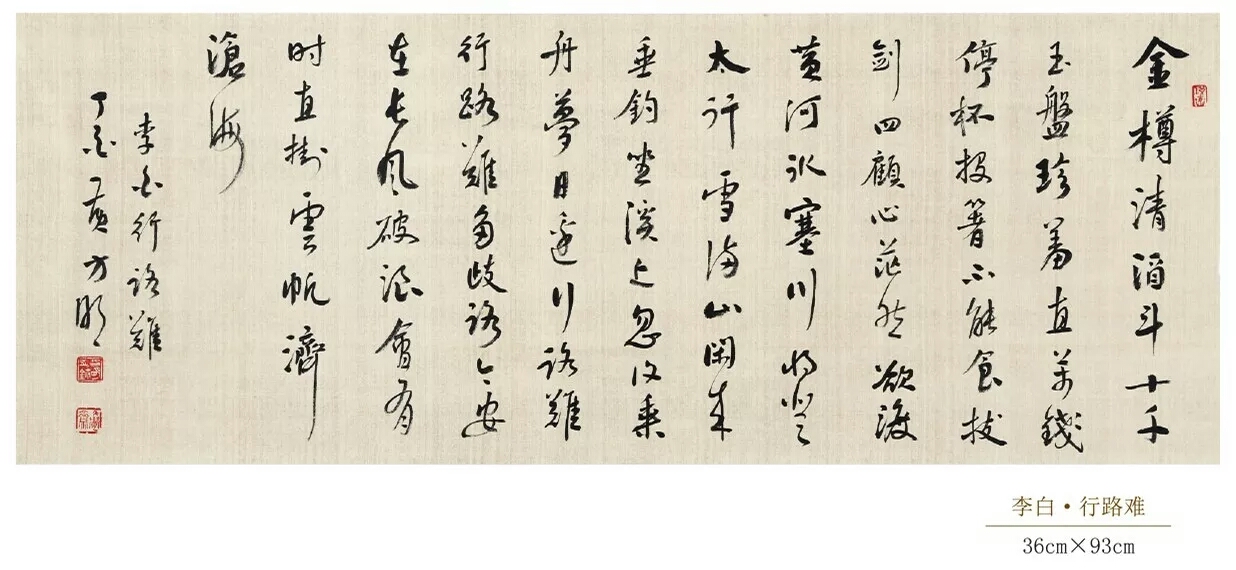 金樽清酒斗十千
玉盤珍羞直萬錢
停杯投箸不能食拔
剑四顧心茫然欲渡
黄河冰塞川将登
太行雪满山閑来
垂釣坐溪上忽復乘
舟夢日邊行路難
行路難多歧路今安
在长风破浪會有
时直掛雲帆濟
滄海
李白行路難
丁酉 方明
李白·行路难
36cm×93cm